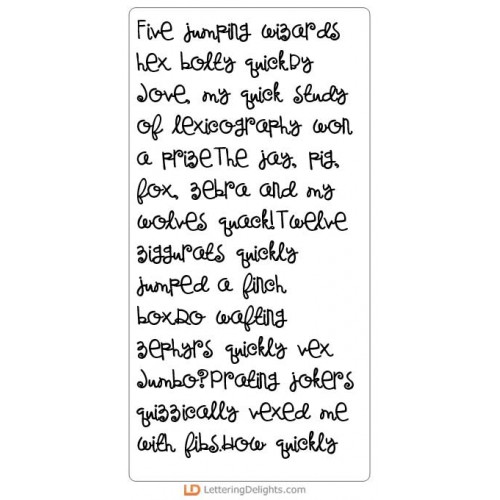 Five jumping wizards
hex bolty quick.By
Jove, my quick study
of lexicography won
a prize.The jay, pig,
fox, zebra and my
wolves quack!Twelve
ziggurats quickly
jumped a finch
box.Do wafting
zephyrs quickly vex
Jumbo?Prating jokers
quizzically vexed me
with fibs.How quickly
LD LetteringDelights.com